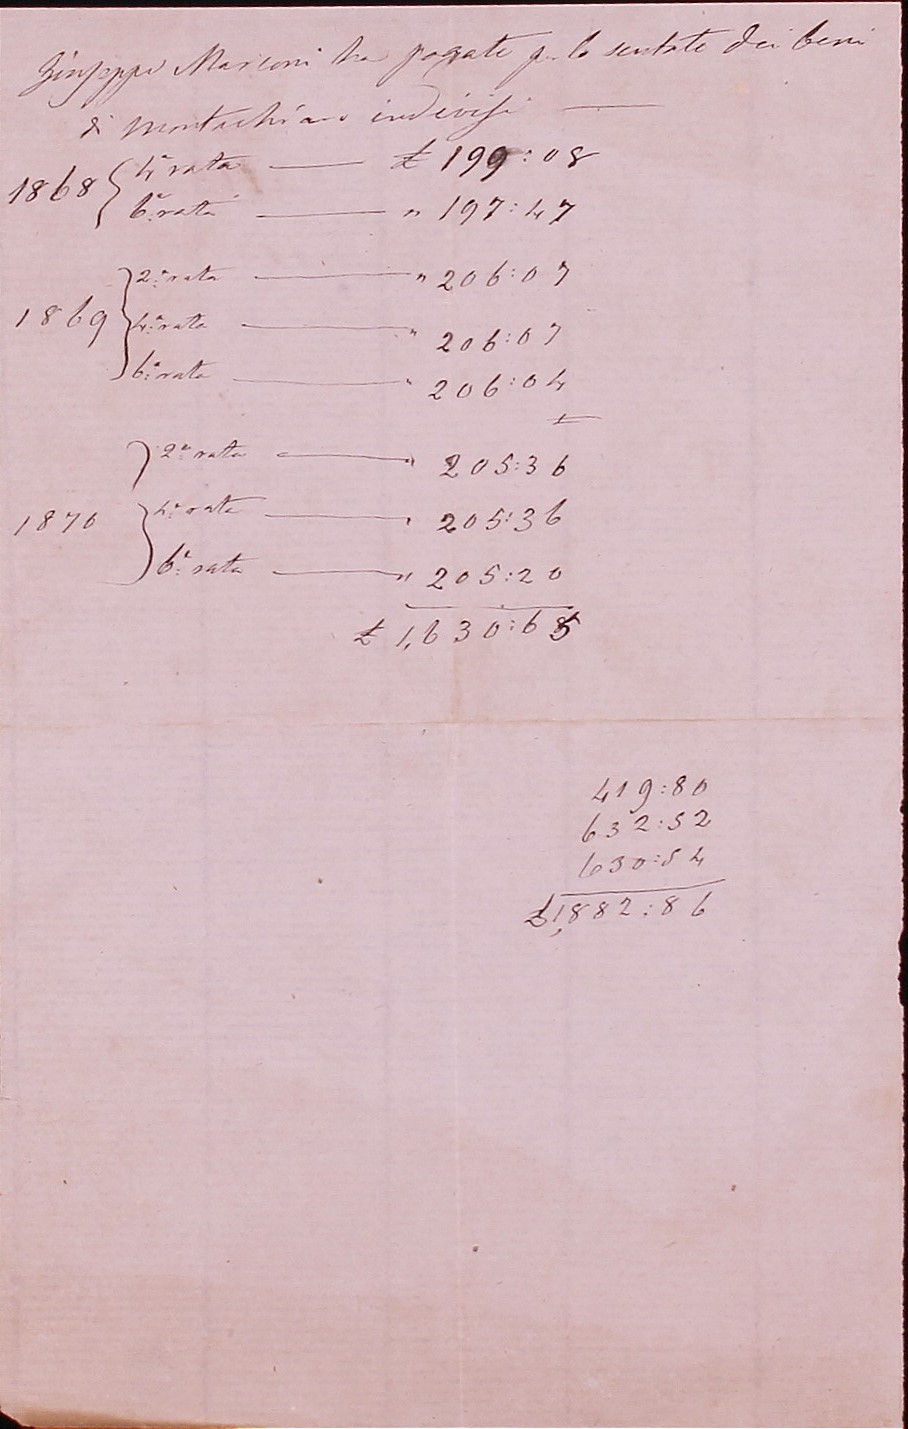 Giuseppe Marconi ha pagate p. le scutate dei beni
di Montechiaro indivisi
1868 4ª rata £ 199:08
6ª rata " 197:47
2ª rata " 206:07
1869 4ª rata " 206:07
6ª rata " 206:04
2ª rata " 205:36
1870 4ª rata " 205:36
6ª rata " 205:20
£ 1,630:65
419:80
632:52
630:54
£1,882:86